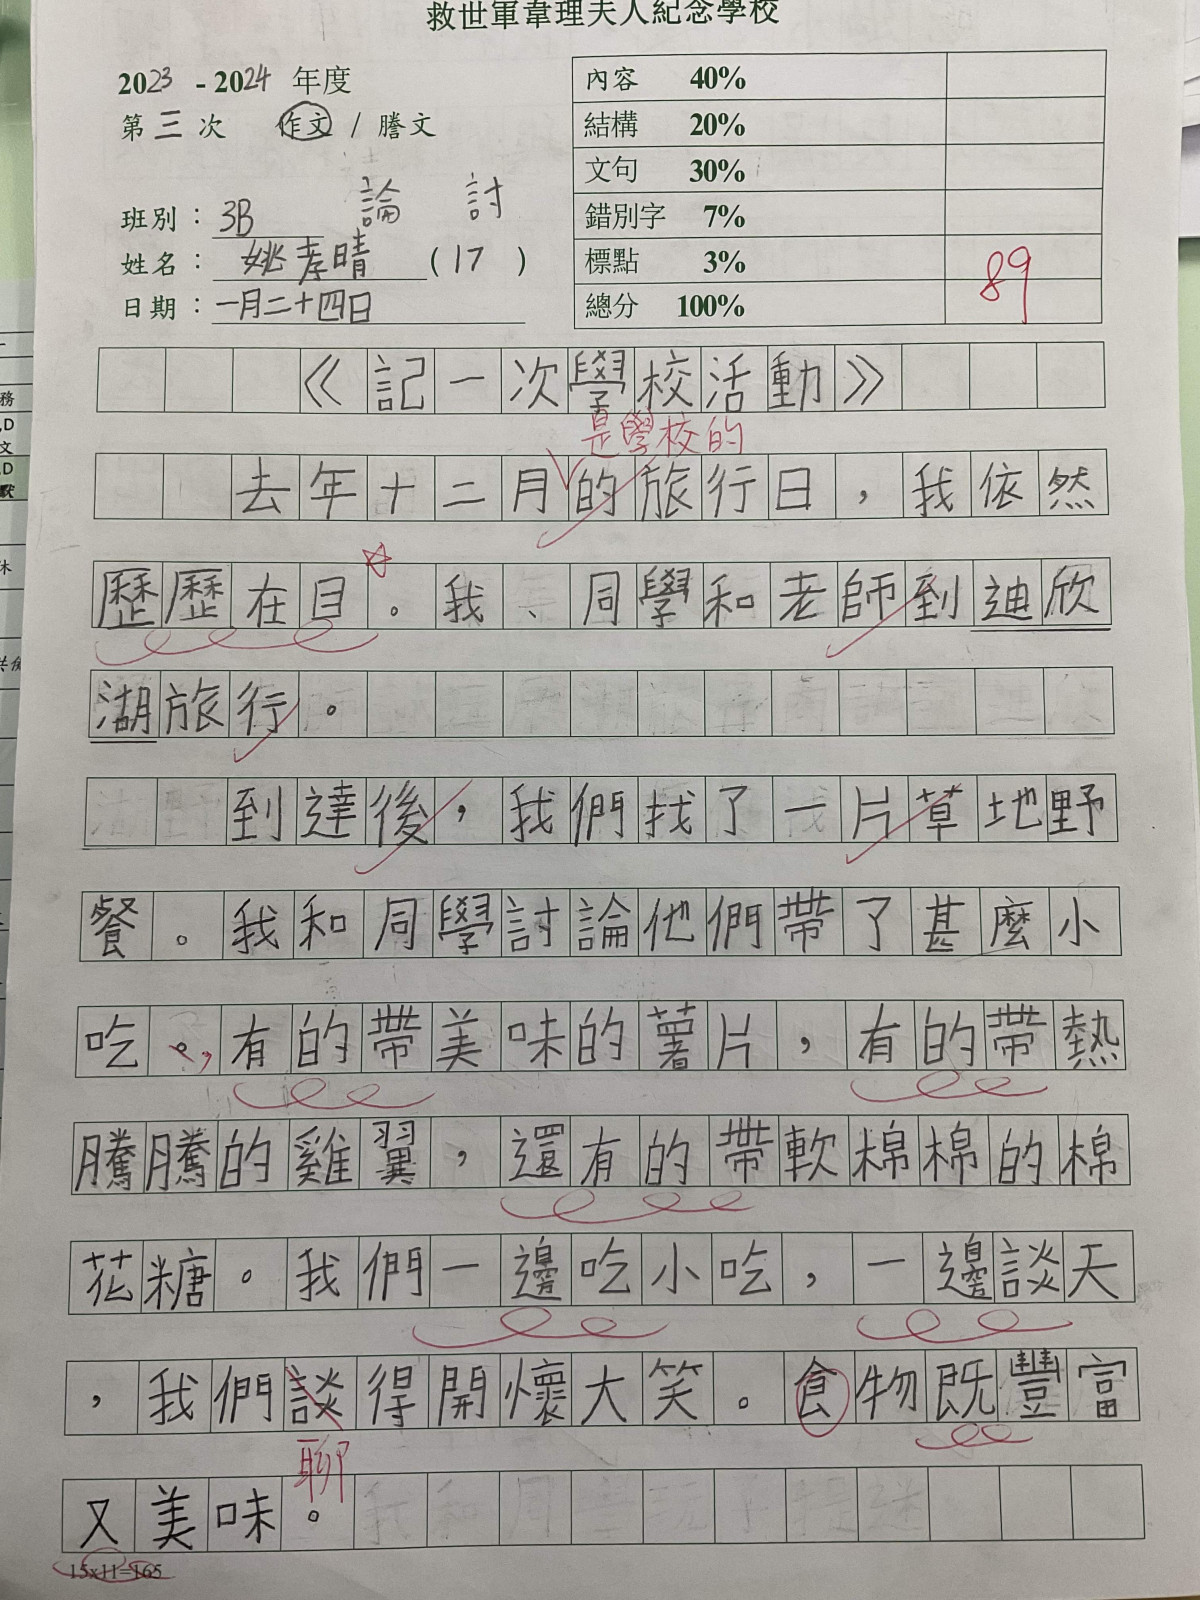 救世軍韋理夫人紀念學校
2023 - 2024 年度
第三次 作文 / 謄文
論 討
班別：3B
姓名：姚孝晴 (17)
日期：一月二十四日
內容 40%
結構 20%
文句 30%
錯別字 7%
標點 3%
總分 100%
89
《記一次學校活動》
是學校的
去年十二月的旅行日，我依然
歷歷在目。我、同學和老師到迪欣
湖旅行。
到達後，我們找了一片草地野
餐。我和同學討論他們帶了甚麼小
吃。，有的帶美味的薯片，有的帶熱
騰騰的雞翼，還有的帶軟棉棉的棉
花糖。我們一邊吃小吃，一邊談天
，我們談得開懷大笑。食物既豐富
聊
又美味。
15x11=165